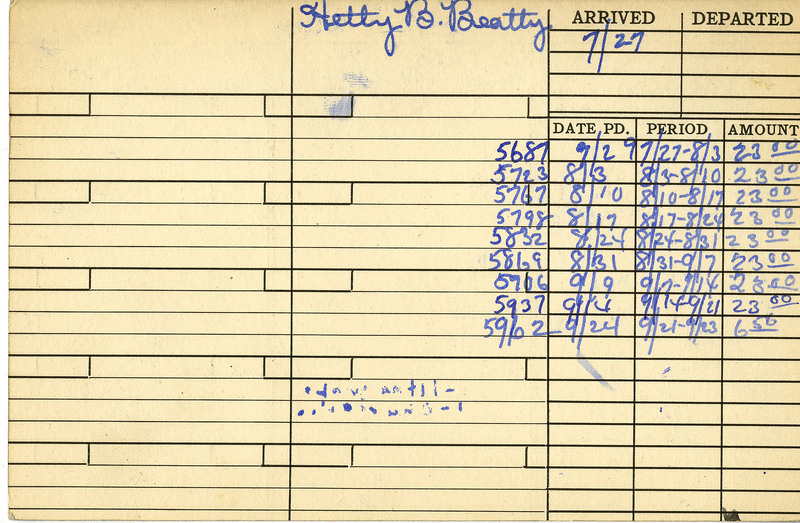 Hetty B. Beatty.
ARRIVED DEPARTED
7/27
DATE PD. PERIOD AMOUNT
5687 7/29 7/27-8/3 23 00
5723 8/3 8/3-8/10 23 00
5767 8/10 8/10-8/17 23 00
5798 8/17 8/17-8/24 23 00
5832 8/24 8/24-8/31 23 00
5869 8/31 8/31-9/7 23 00
5906 9/9 9/7-9/14 23 00
5937 9/14 9/14-9/21 23 00
5962 9/24 9/21-9/23 6 50